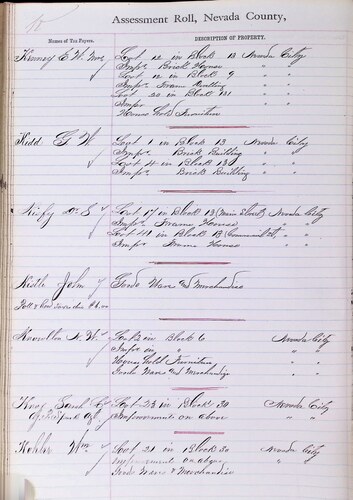 Assessment Roll, Nevada County,
Names of Tax Payers.
DESCRIPTION OF PROPERTY.
Kinney E. W. Mrs Lot 12 in Block 13 Nevada City
Impr. Brick House " "
Lot 12 in Block 9 " "
Impr. Frame Dwelling " "
Lot 20 in Block 31 " "
Impr
House hold Furniture
Kidd G W Lot 1 in Block 13 Nevada City
Impr. Brick Building " "
Lot 4 in Block 13 " "
Impr. Brick Building " "
Lot 17 in Block 13 (Main Street) Nevada City
Impr. Frame House " "
Lot 41 in Block 13 (Commercial St, " "
Impr. Frame House " "
Keith John Goods Wares and Merchandise
Poll &
Lot 2 in Block 6 Nevada City
Impr. on " "
House hold Furniture
Goods Wares and Merchandise
Lot 23 in Block 30 Nevada City
Improvements on above " "
Wm Lot 21 in Block 30 Nevada City
Improvement on above " "
Goods Wares & Merchandise